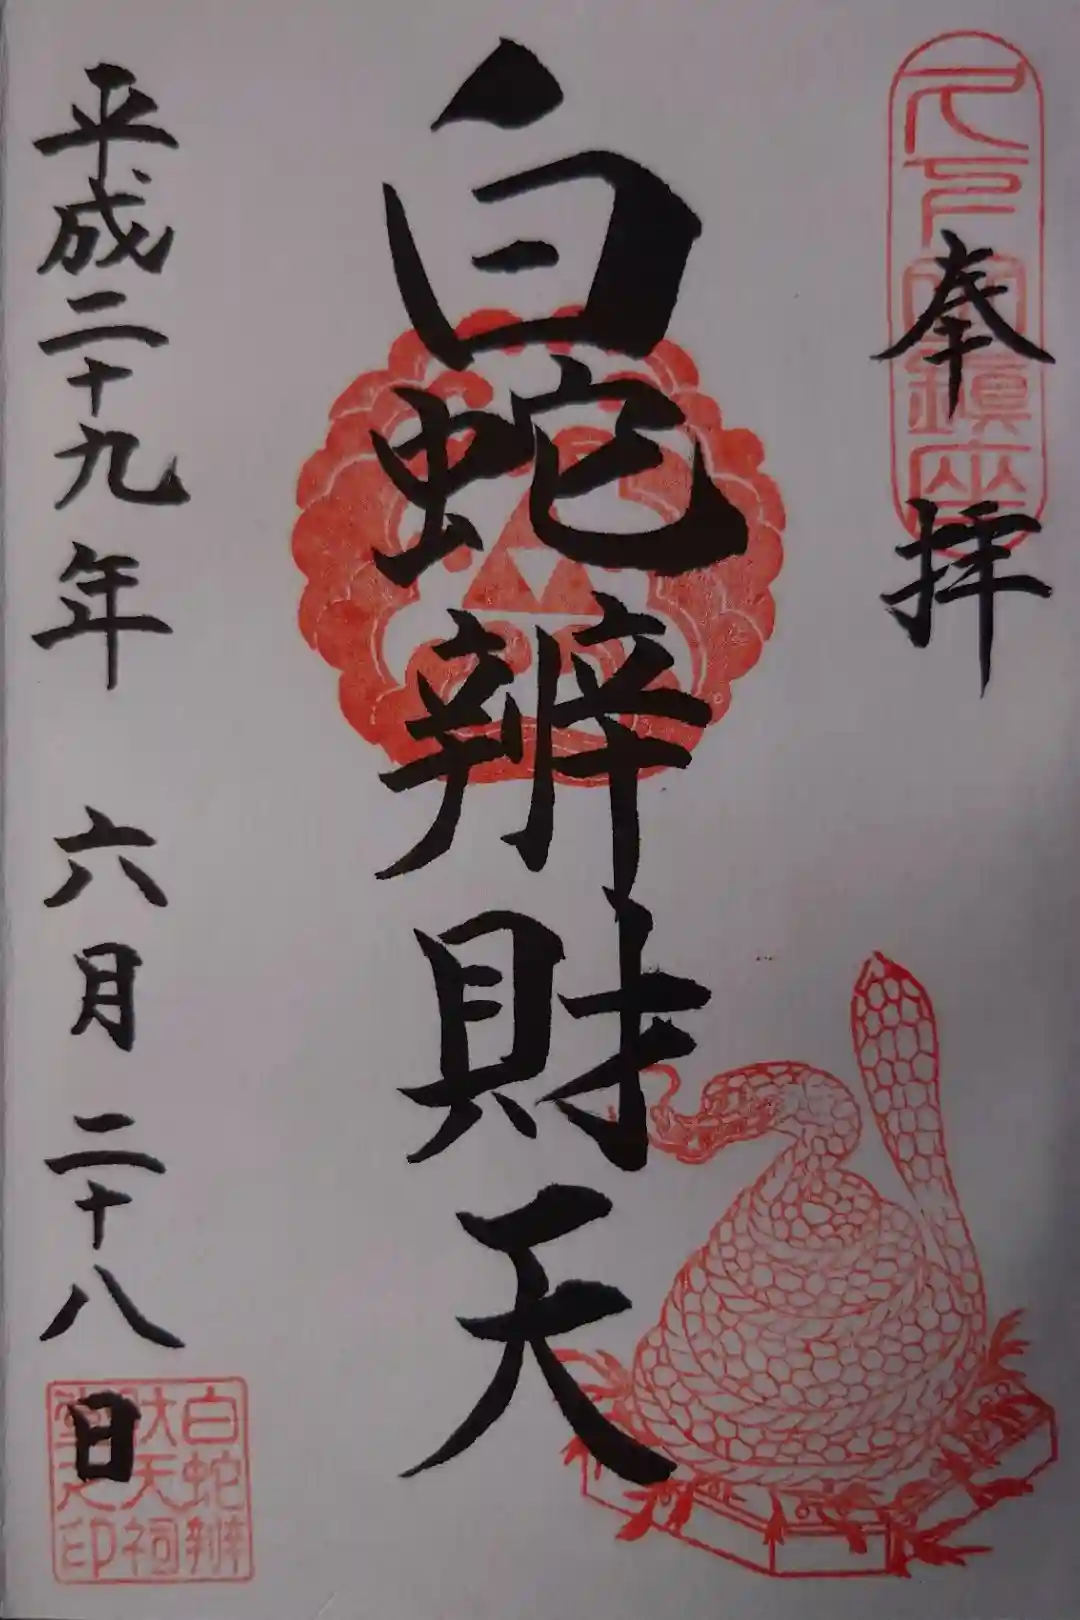 奉拝
白蛇辨財天
平成二十九年 六月 二十八日
白蛇辨
天祠
之印